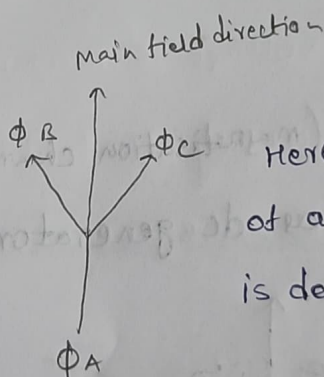 Main field direction
ΦB
ΦC
Here
of a
is de
ΦA